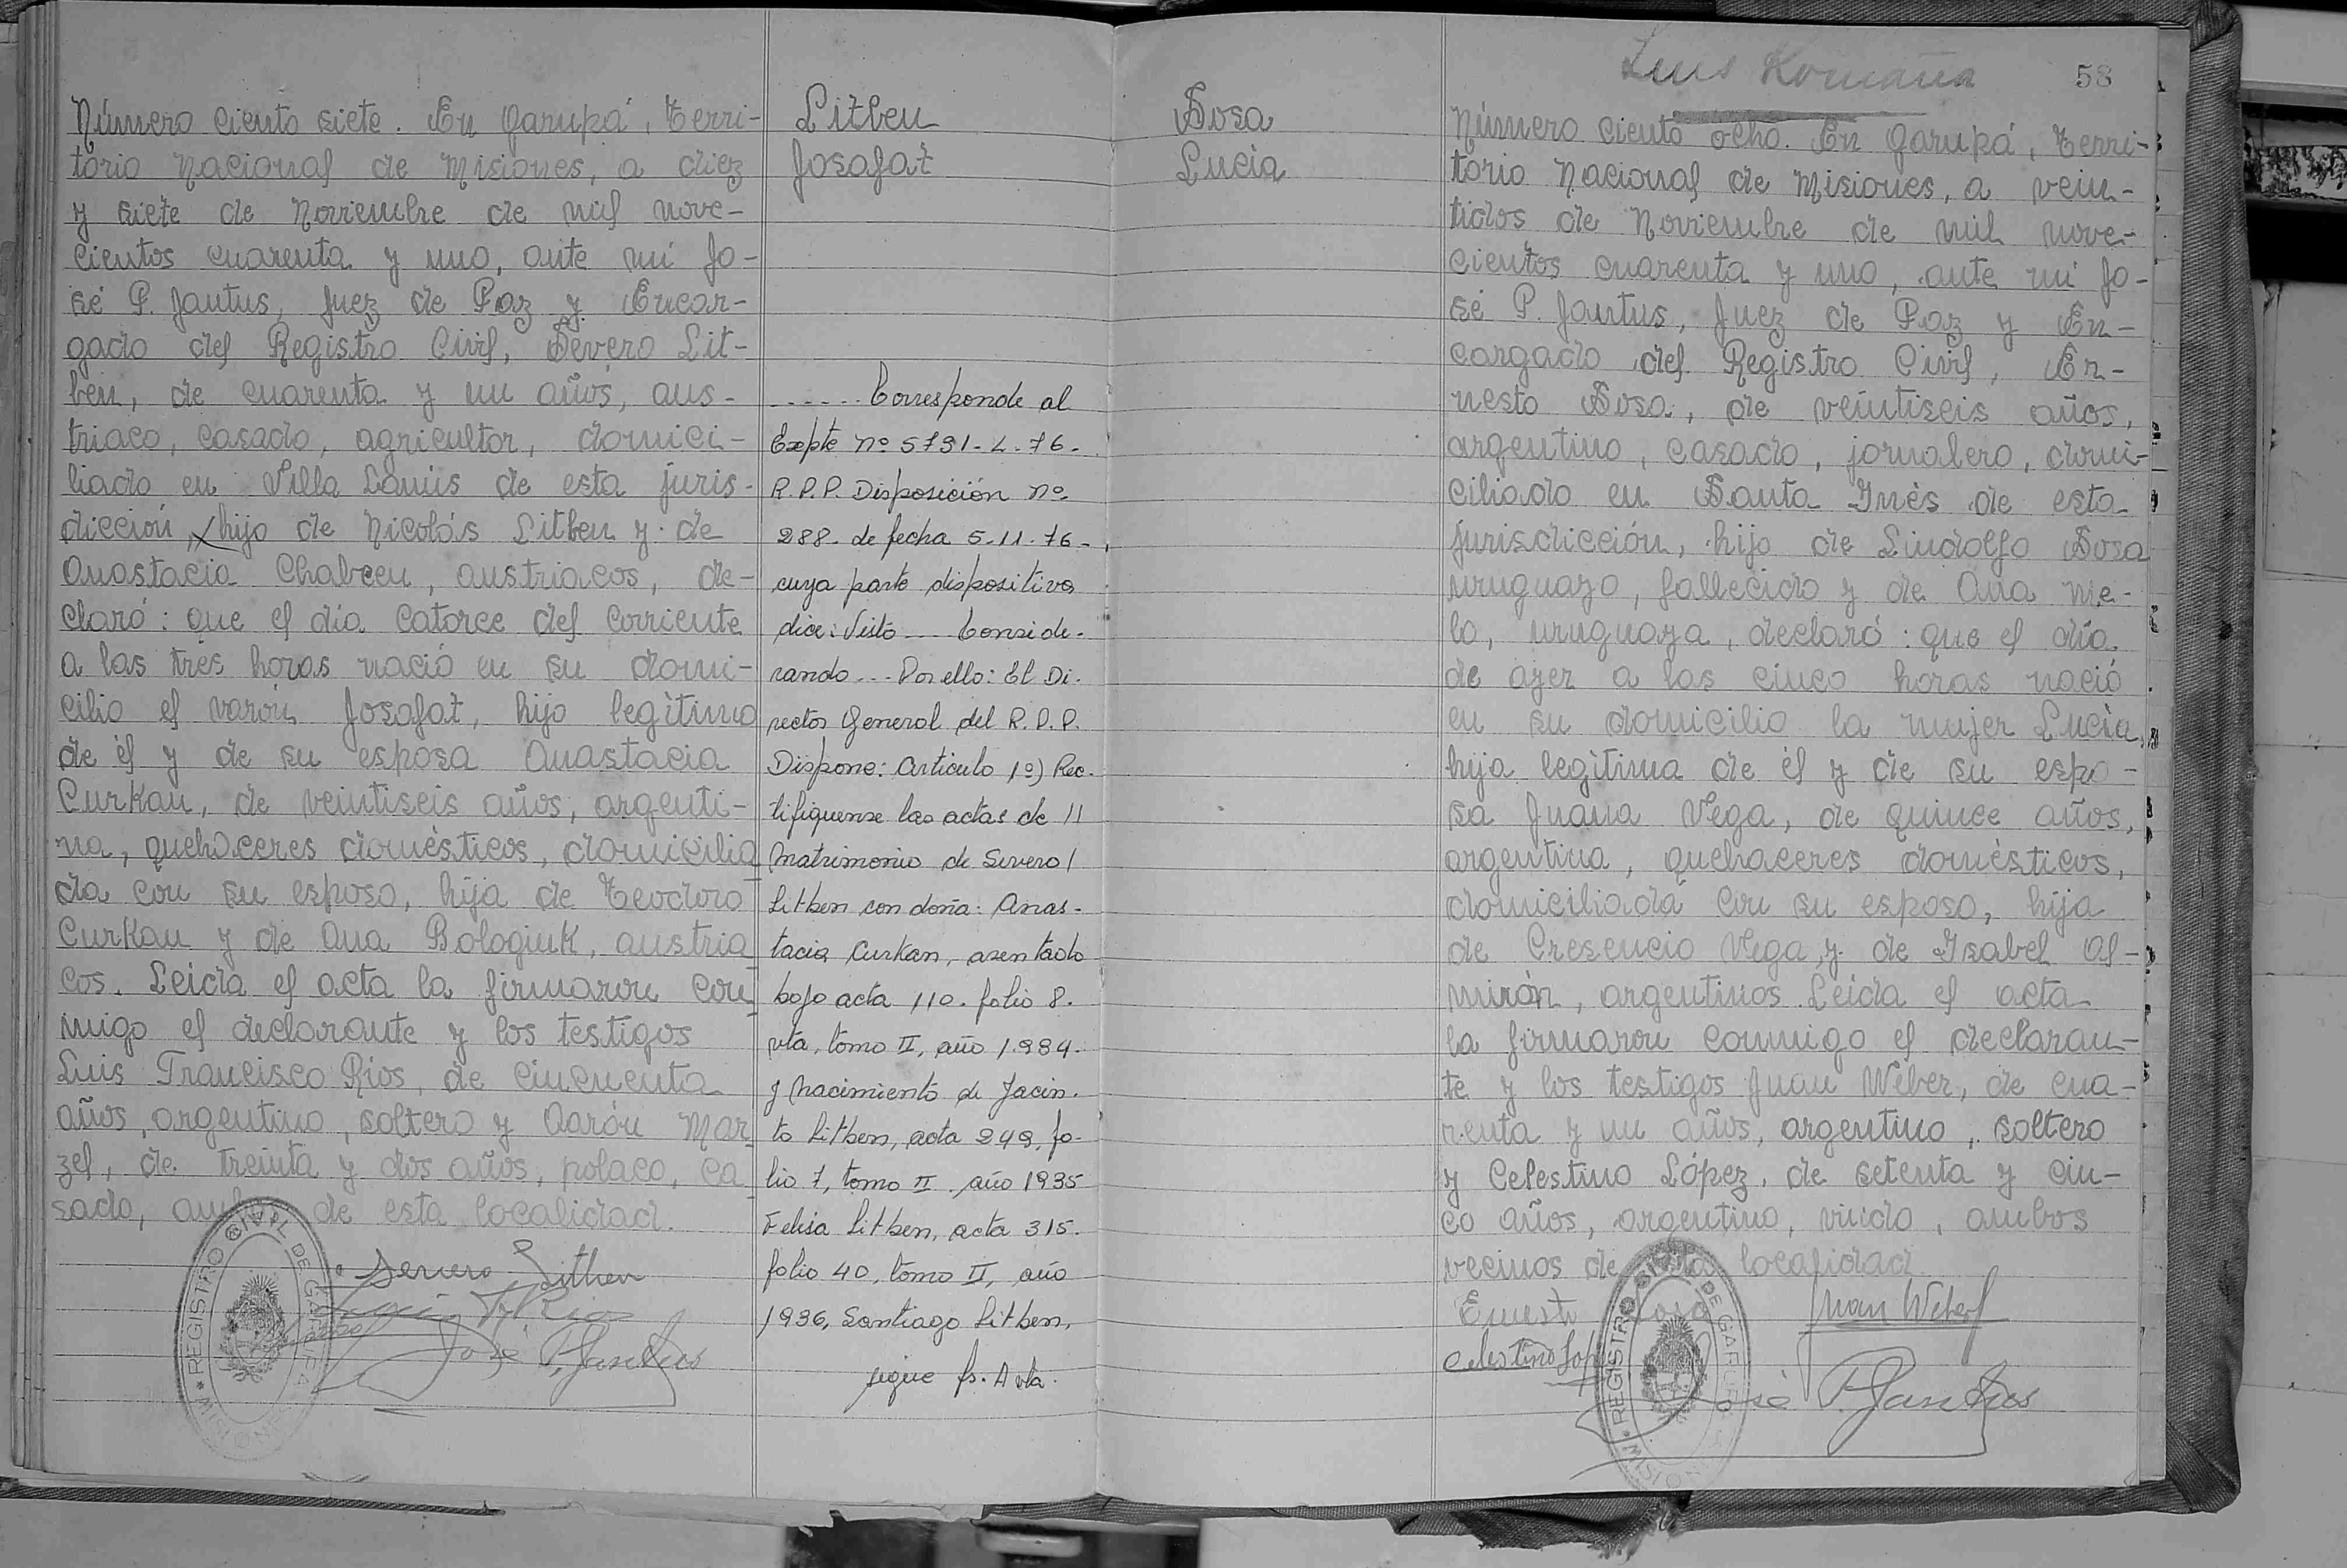 Número ciento siete. En Garupá, Terri-
torio Nacional de Misiones, a diez
y siete de Noviembre de mil nove-
cientos cuarenta y uno, ante mi Jo-
sé P. Jantus, Juez de Paz y Encar-
gado del Registro Civil, Severo Lit-
ben, de cuarenta y un años, aus-
triaco, casado, agricultor, domici-
liado en Villa Lanús de esta juris-
dicción, hijo de Nicolás Litben y de
Anastacia Chabeen, austriacos, de-
claró: que el día catorce del corriente
a las tres horas nació en su domi-
cilio el varón Josafat, hijo legítimo
de él y de su esposa Anastacia
Curkan, de veintiseis años, argenti-
na, quehaceres domésticos, domicilia
da con su esposo, hija de Teodoro
Curkan y de Ana Bologiuk, austria
cos. Leida el acta la firmaron con
migo el declarante y los testigos
Luis Francisco Rios, de cincuenta
años, argentino, soltero y Aarón Mar
zel, de treinta y dos años, polaco, ca
sado, ambos de esta localidad.
Severo Litben
José P. Jantus
REGISTRO CIVIL DE GARUPÁ
MISIONES
Litben
Josafat
...... Corresponde al
Expte nº 5791-L-76-
R.P.P. Disposición nº
288- de fecha 5-11-76-,
cuya parte dispositiva
dice: Visto .... Conside-
rando ... Por ello: El Di-
rector General del R.P.P.
Dispone: Articulo 1º) Rec-
tifiquense las actas de //
Matrimonio de Severo /
Litben con doña: Anas-
tacia Curkan, asentado
bajo acta 110. folio 8.
vta, tomo II, año 1934.
y Nacimiento de Jacin-
to Litben, acta 242, fo-
lio 7, tomo II año 1935
Felisa Litben, acta 315.
folio 40, tomo II, año
1936, Santiago Litben,
sigue fs. A vta.
Sosa
Lucía
Luis Romaña
58
Número ciento ocho. En Garupá, Terri-
torio Nacional de Misiones, a vein-
tidos de Noviembre de mil nove-
cientos cuarenta y uno, ante mi Jo-
sé P. Jantus, Juez de Paz y En-
cargado del Registro Civil, Er-
nesto Sosa, de veintiseis años,
argentino, casado, jornalero, domi-
ciliado en Santa Inés de esta
jurisdicción, hijo de Lindolfo Sosa
uruguayo, fallecido y de Ana Me-
lo, uruguaya, declaró: que el día
de ayer a las cinco horas nació
en su domicilio la mujer Lucía,
hija legítima de él y de su espo-
sa Juana Vega, de quince años,
argentina, quehaceres domésticos,
domiciliada con su esposo, hija
de Cresencio Vega y de Isabel Al-
mirón, argentinos. Leida el acta
la firmaron conmigo el declaran-
te y los testigos Juan Weber, de cua-
renta y un años, argentino, soltero
y Celestino López, de setenta y cin-
co años, argentino, viudo, ambos
vecinos de esta localidad.
Ernesto Sosa Juan Weber
Celestino Lopez
José P. Jantus
REGISTRO CIVIL DE GARUPÁ
MISIONES